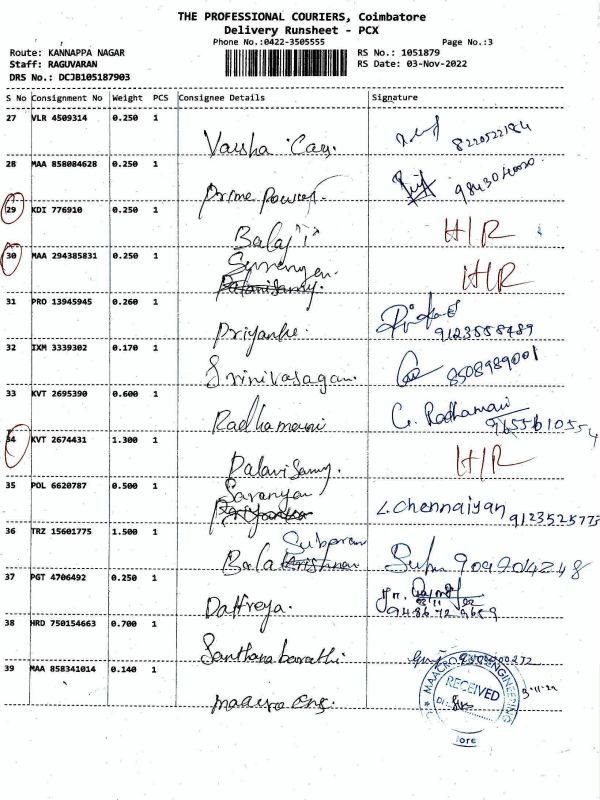 THE PROFESSIONAL COURIERS, Coimbatore
Delivery Runsheet - PCX
Phone No.:0422-3505555 Page No.:3
Route: KANNAPPA NAGAR RS No.: 1051879
Staff: RAGUVARAN RS Date: 03-Nov-2022
DRS No.: DCJB105187903
S No Consignment No Weight PCS Consignee Details Signature
27 VLR 4509314 0.250 1
Varsha Cas. 8220522184
28 MAA 858084628 0.250 1
Prime Power.
29 KDI 776910 0.250 1
Balaji H/R
30 MAA 294385831 0.250 1
H/R
Palanisamy.
31 PRO 13945945 0.260 1
Priyanka. 9123558489
32 IXM 3339302 0.170 1
Srinivasagan. 8508989001
33 KVT 2695390 0.600 1
Radhamani G. Radhamani
9655610554
34 KVT 2674431 1.300 1
Palanisamy. H/R
35 POL 6620787 0.500 1
Saranya L. Chennaiyan 9123525773
36 TRZ 15601775 1.500 1
Bala 909704248
37 PGT 4706492 0.250 1
Dattreya. 9486729659
38 HRD 750154663 0.700 1
Santhanabarathi
39 MAA 858341014 0.140 1
maacro eng. RECEIVED